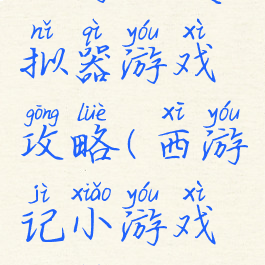 nǐ qì yóu xì
拟器游戏
gōng lüè xī yóu
攻略(西游
jì xiǎo yóu xì
记小游戏